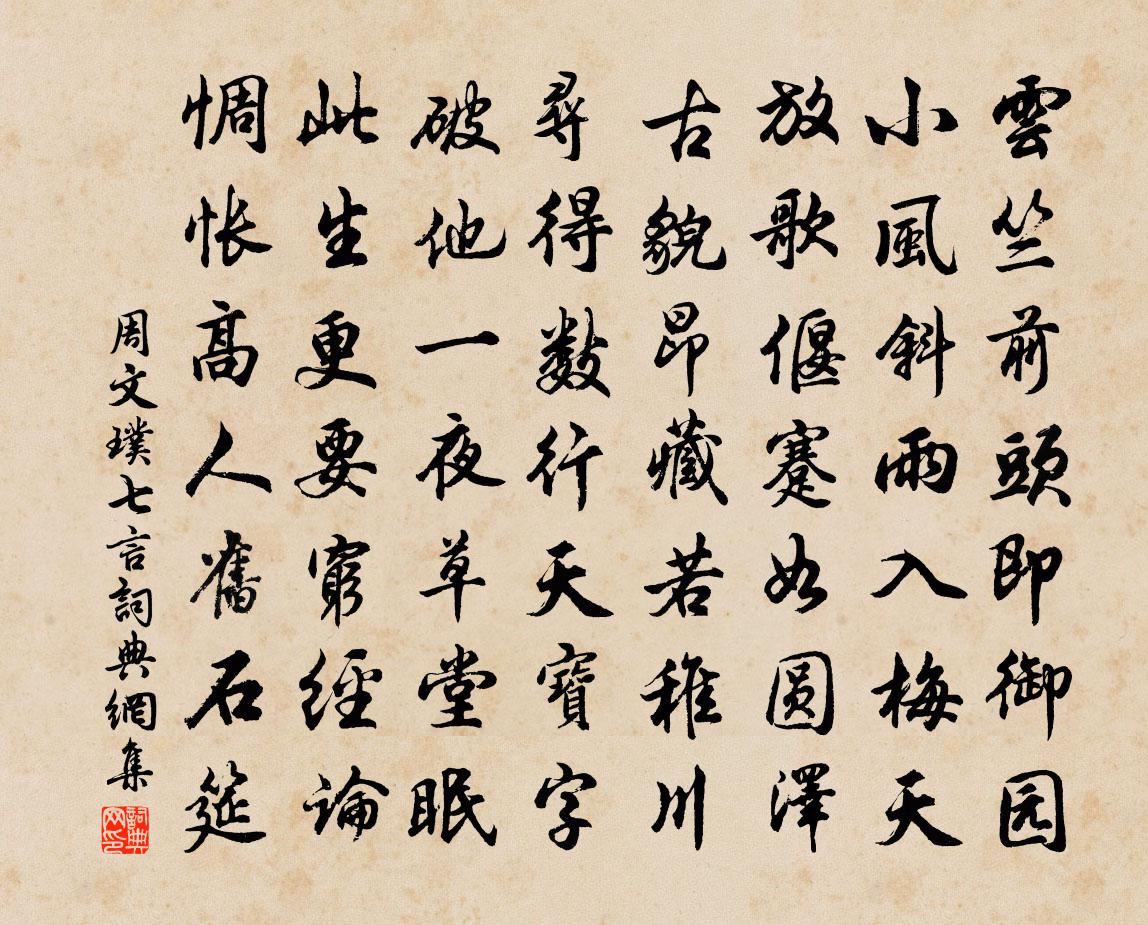 雲竺前頭即御园
小風斜雨入梅天
放歌偃蹇如圆澤
古貌昂藏若稚川
尋得數行天寶字
破他一夜草堂眠
此生更要窮經論
惆怅高人舊石筵
周文璞七言詞典網集
詞典网印